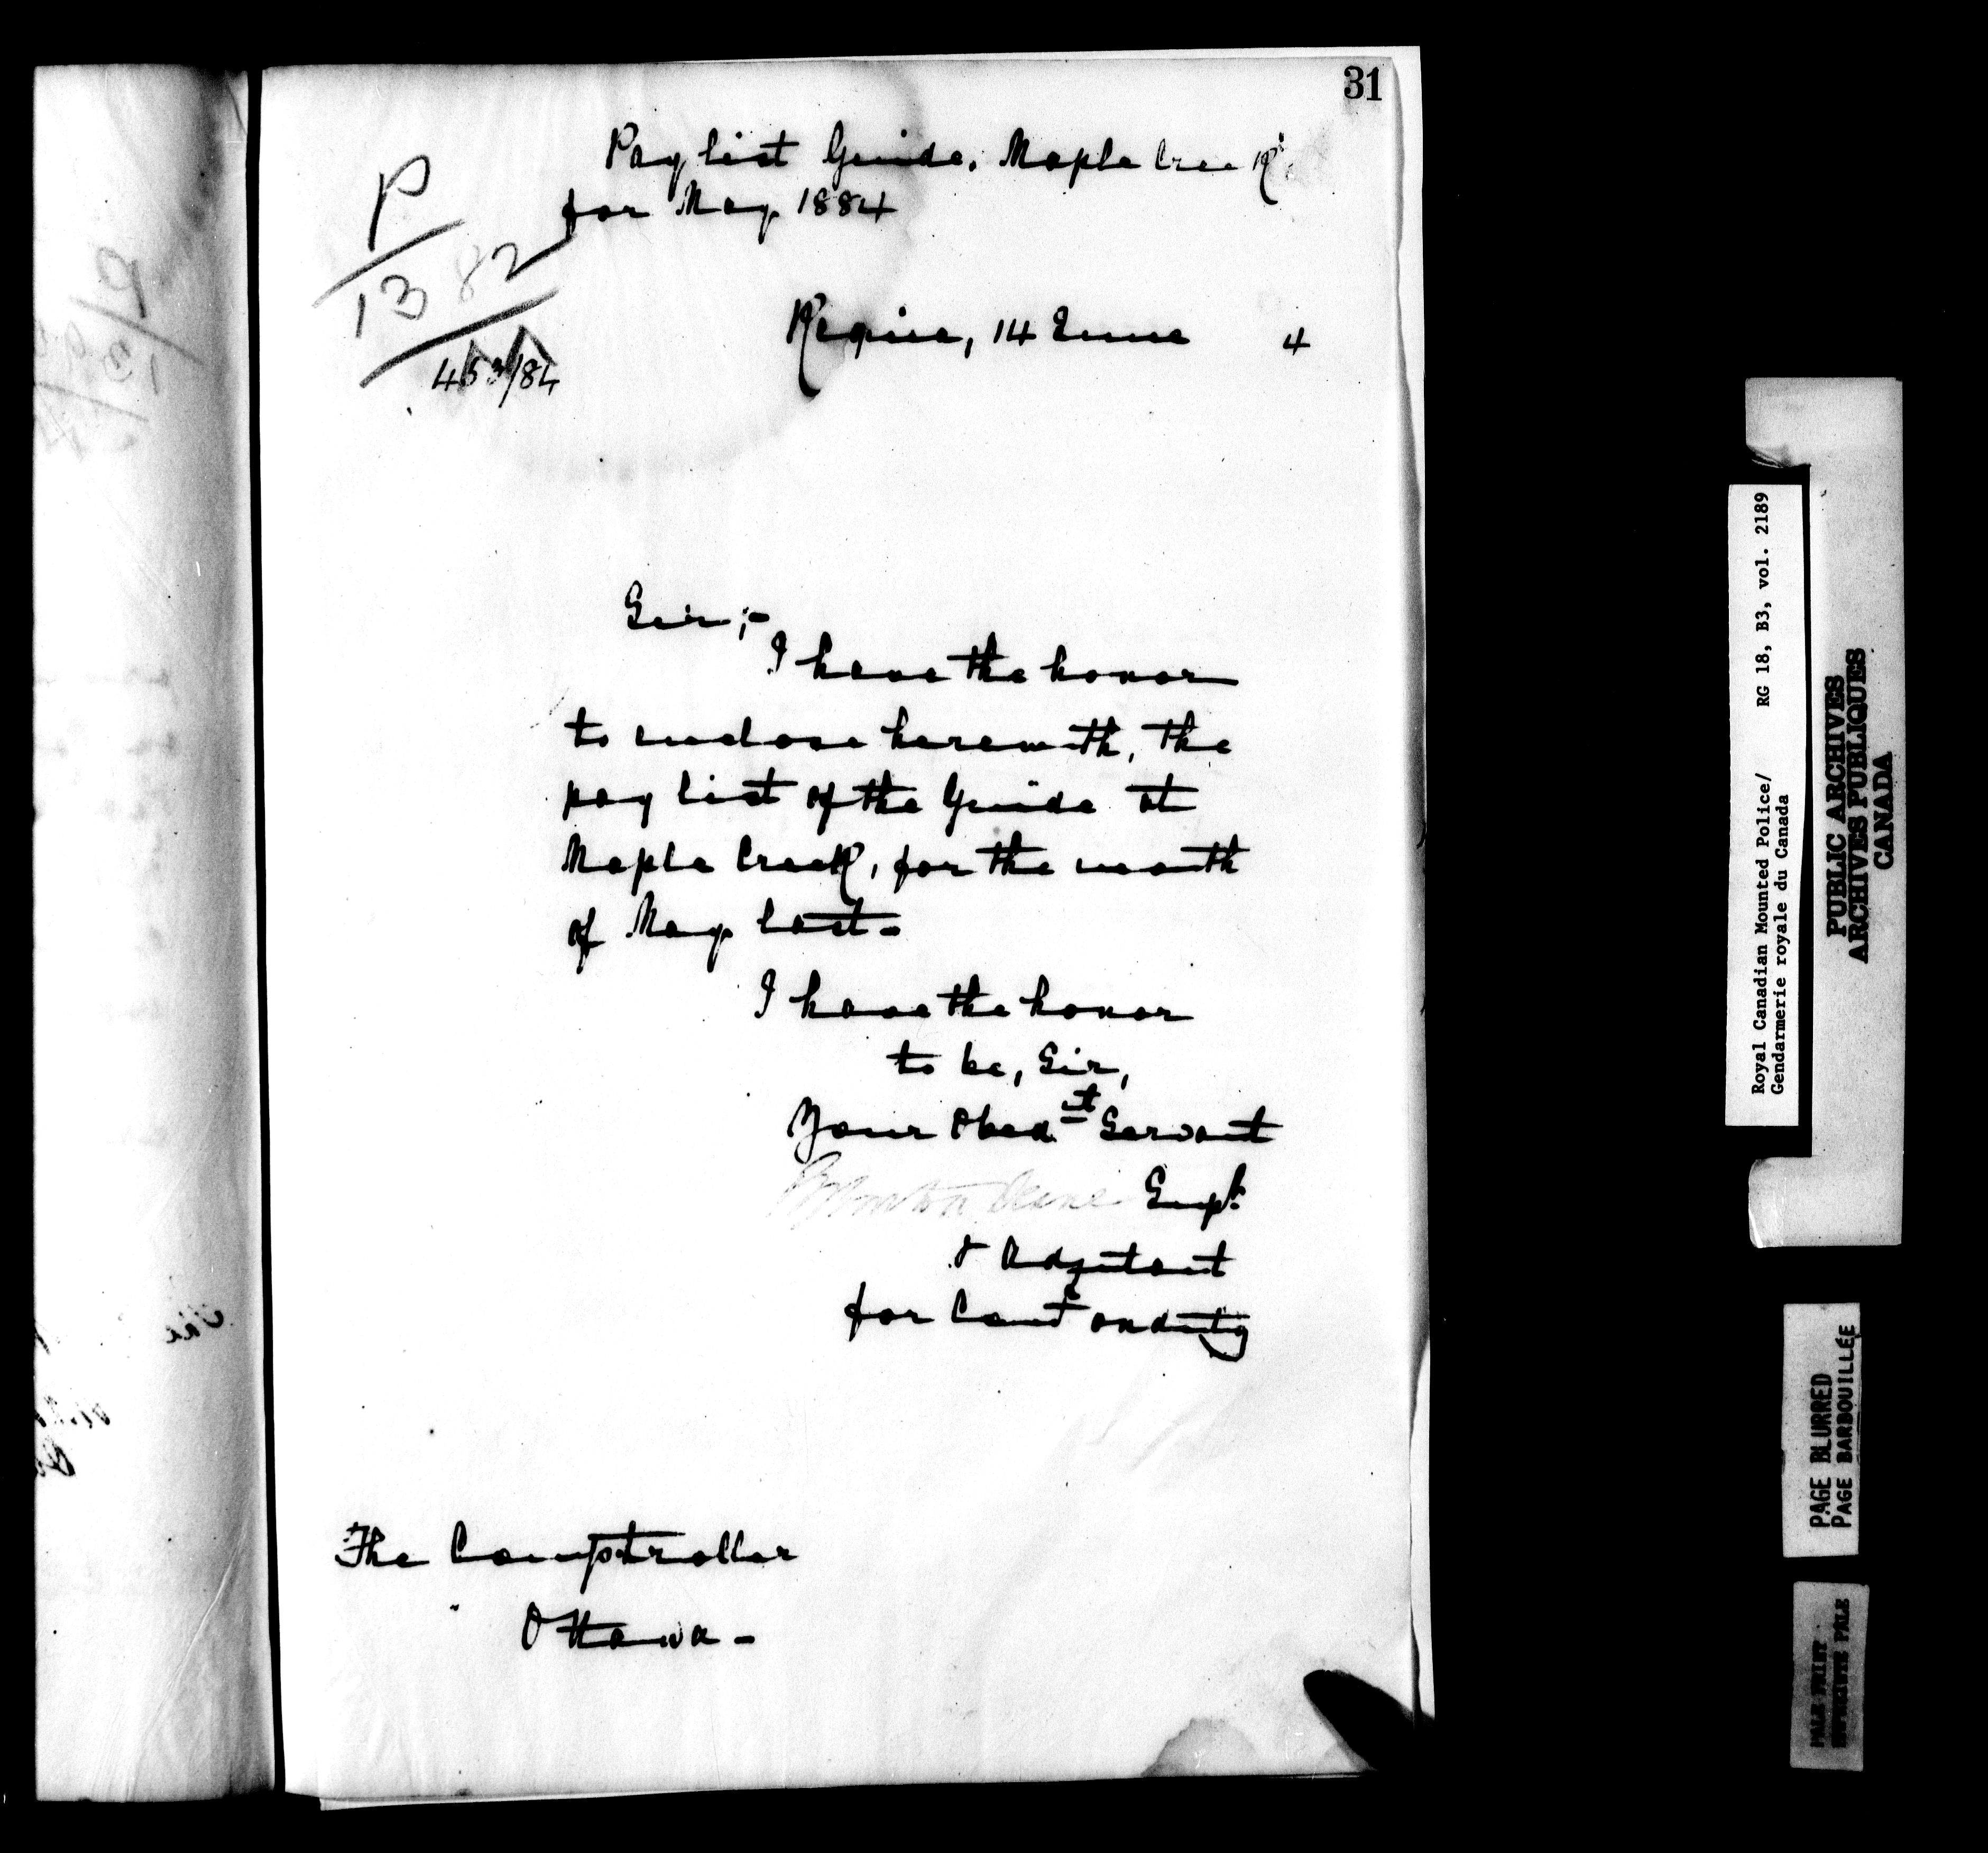 31
Pay list Guide, Maple Creek
for May 1884
P
1382
453/84
Regina, 14 June 4
Sir;-
I have the honor
to enclose herewith, the
pay list of the Guide at
Maple Creek, for the month
of May last-
I have the honor
to be, Sir,
Your Obednt Servant
Burton Deane Supt
& Adjutant
for Comt on duty
The Comptroller
Ottawa-
Royal Canadian Mounted Police/ RG 18, B3, vol. 2189
Gendarmerie royale du Canada
PUBLIC ARCHIVES
ARCHIVES PUBLIQUES
CANADA
PAGE BLURRED
PAGE BARBOUILLÉE
PALE PRINT